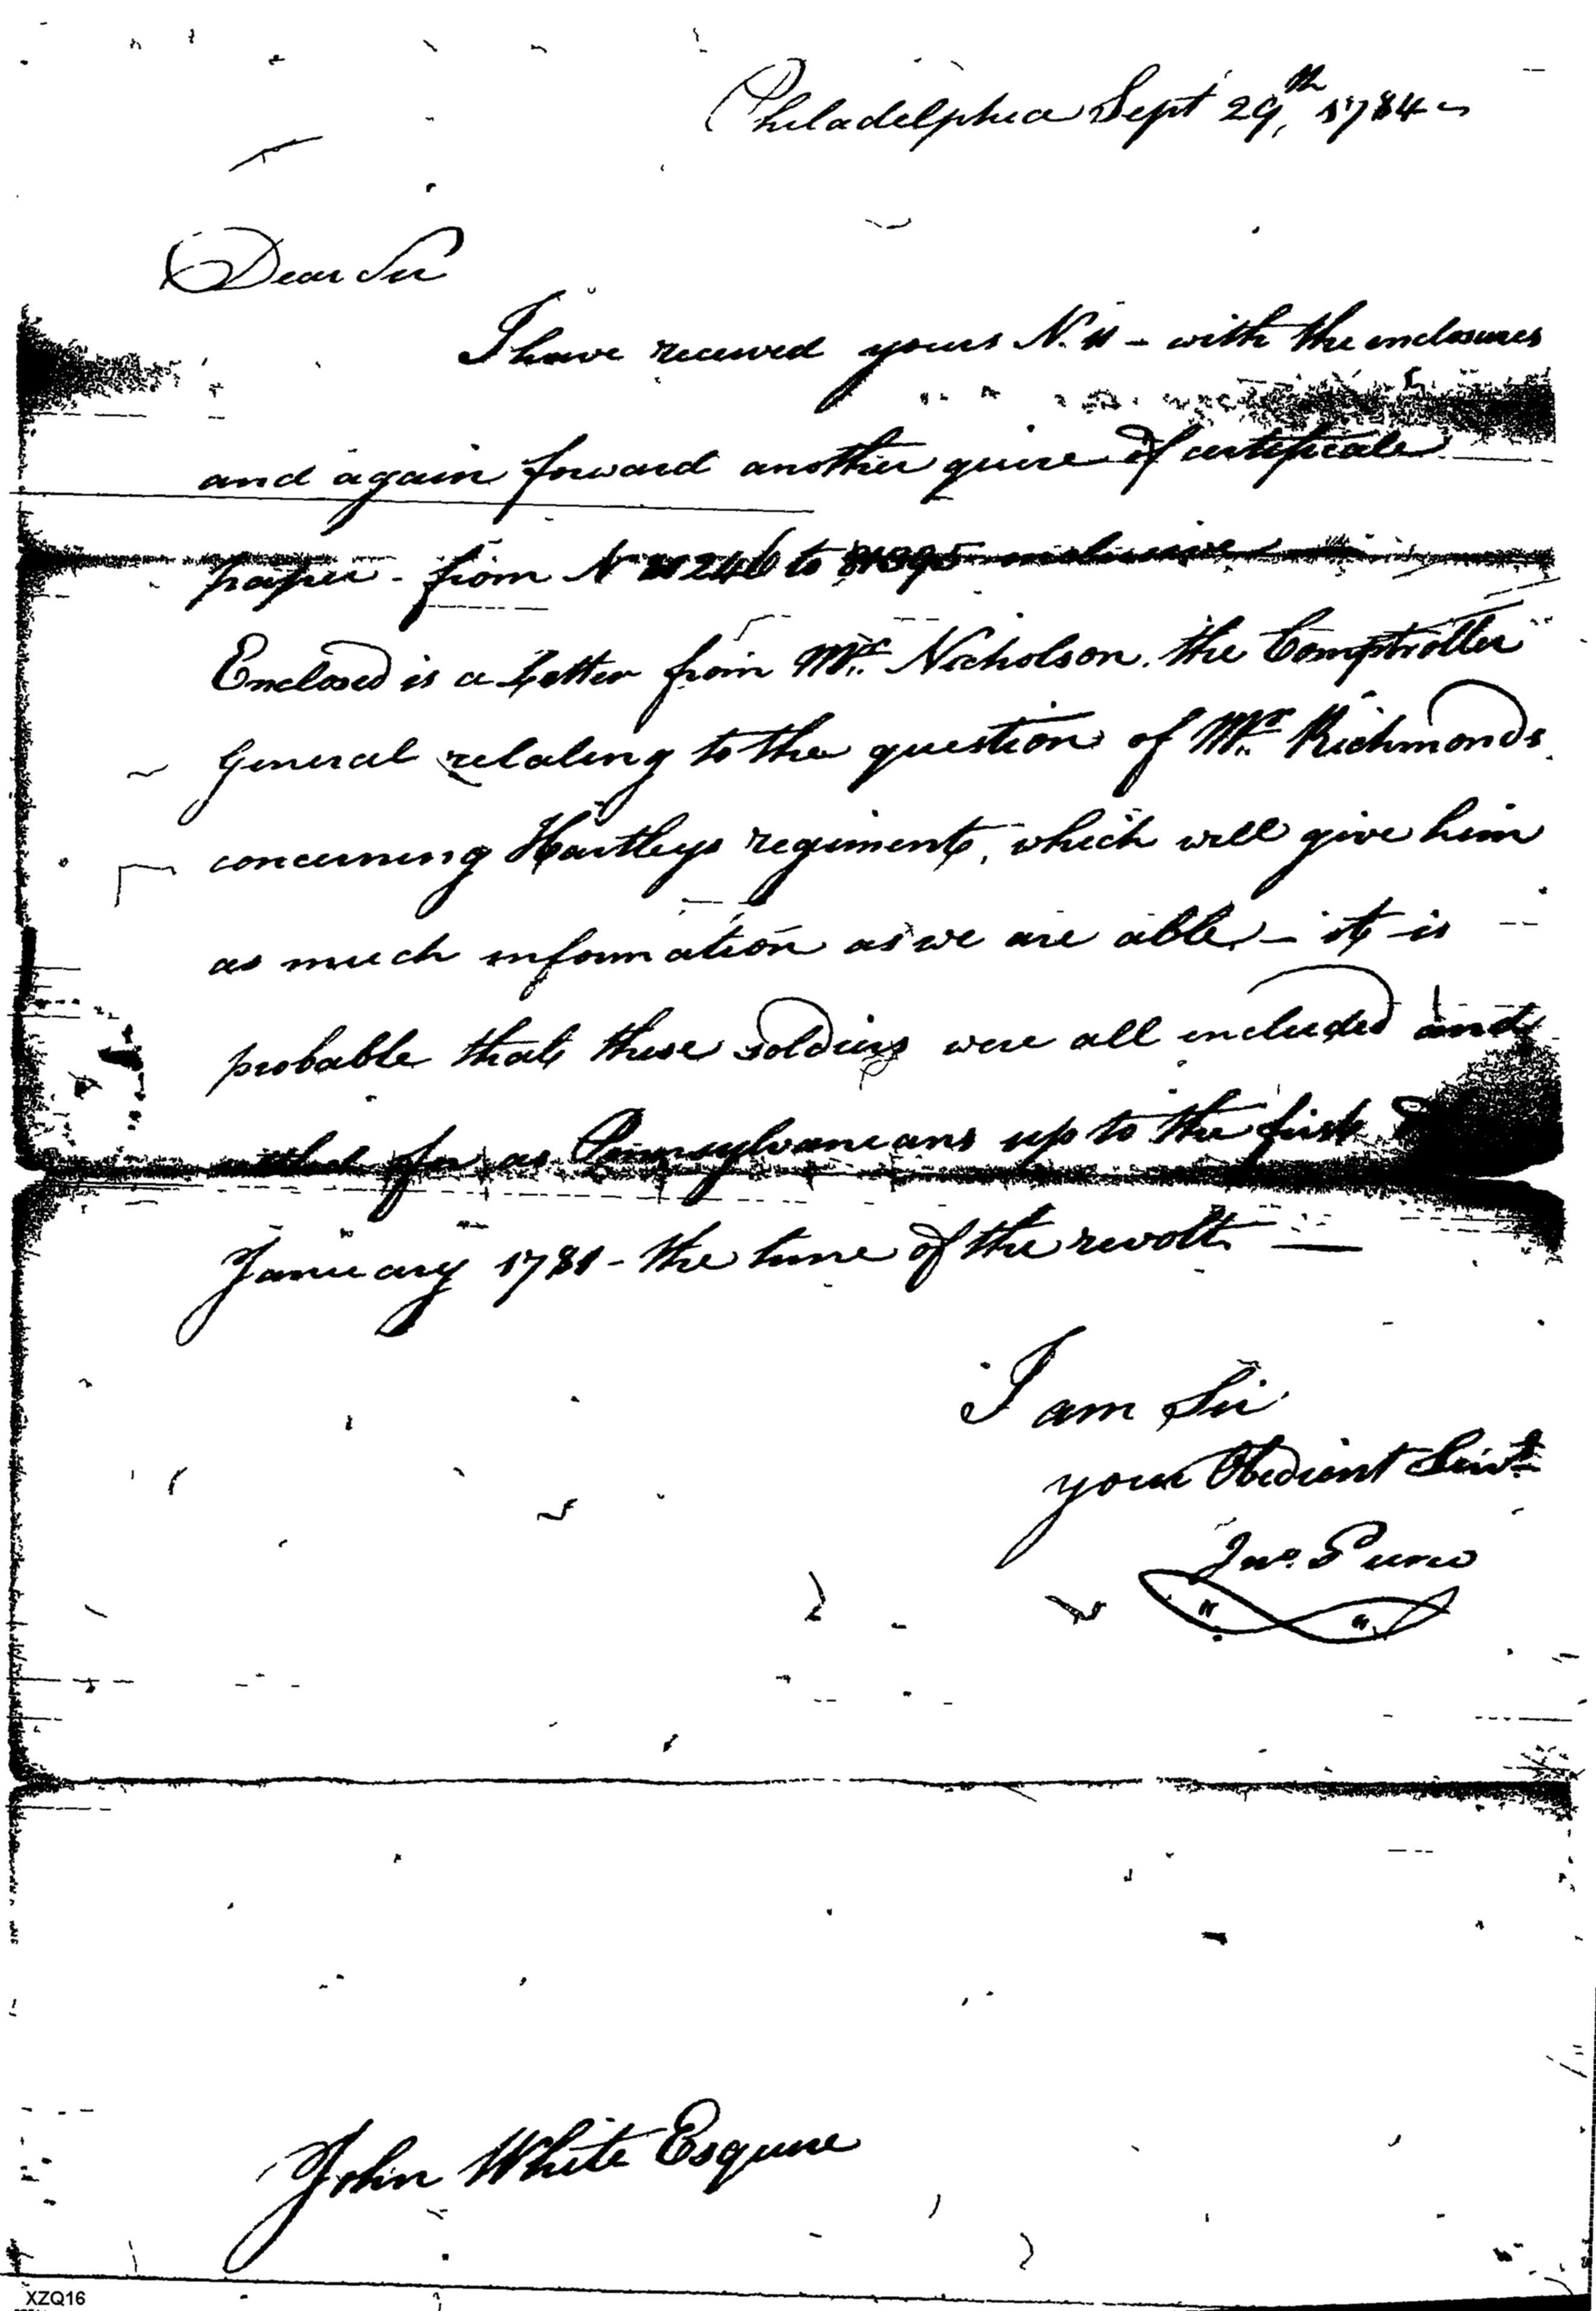 Philadelphia Sept 29th, 1784
Dear Sir
I have received yours N. 11 - with the enclosures
and again forward another quire of certificate
paper - from N to inclusive
Enclosed is a Letter from Mr. Nicholson. the Comptroller
General relating to the question of Mr. Richmonds
concerning Hartleys regiment, which will give him
as much information as we are able - it is
probable that these soldiers were all included and
settled for as Pennsylvanians up to the first
January 1781 - the time of the revolt. —
I am Sir
your Obedient Servt.
Jno. Pierce
John White Esquire
XZQ16